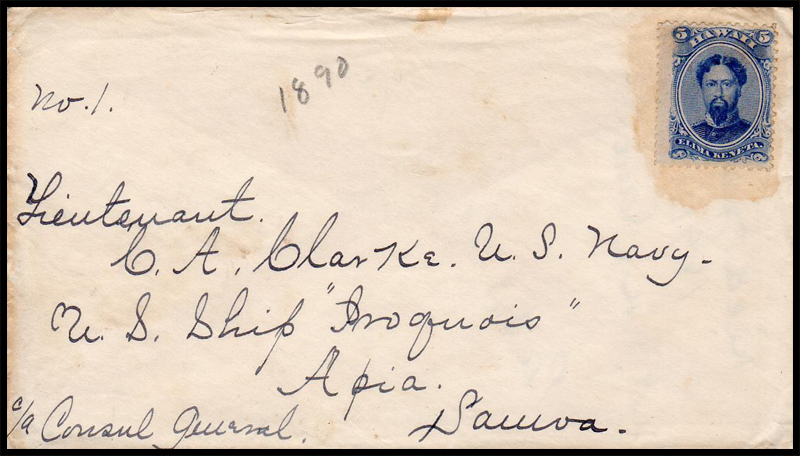 5 HAWAII 5
ELIMA KENETA.
1890
No. 1.
Lieutenant.
C. A. Clarke. U. S. Navy.
U. S. Ship "Iroquois"
Apia.
Samoa.
c/o Consul General.